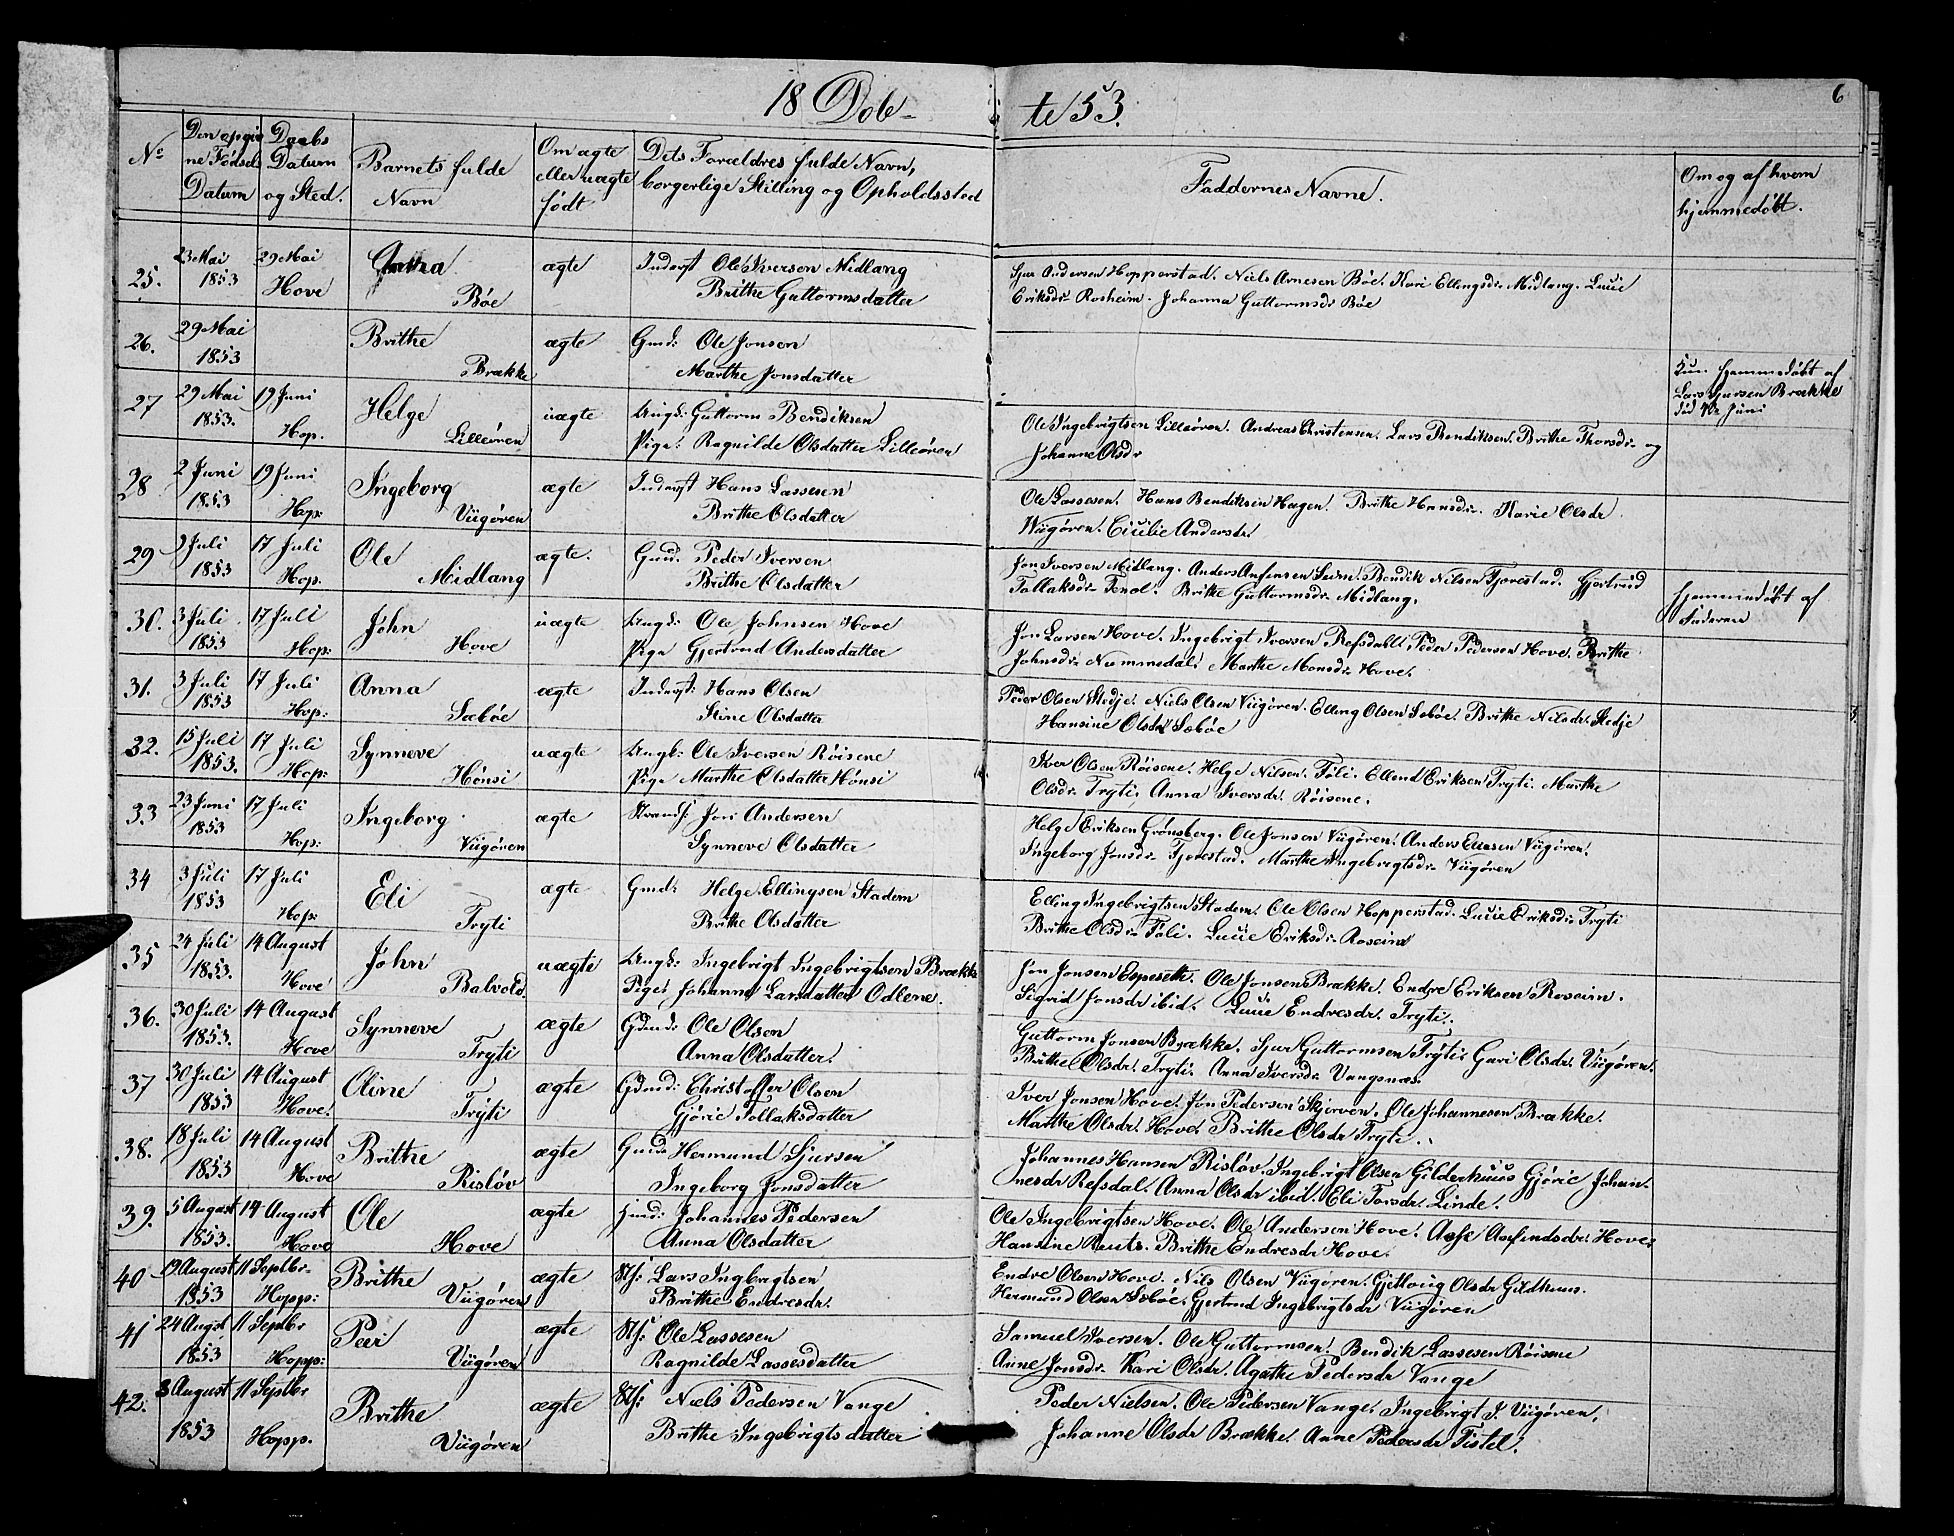 18 Døb- te 53.
6
No
Den opgiv
ne Fødsels
Datum
Daabs
Datum
og Sted.
Barnets fulde
Navn
Om ægte
eller uægte
født
Dets Forældres fulde Navn,
borgerlige Stilling og Opholdssted
Faddernes Navne.
Om og af hvem
hjemmedøbt.
25. 23 Mai 1853 29 Mai Hove
Anna Bøe
ægte
Inderst Ole Iversen Midlang
Brithe Guttormsdatter
Sjur Andersen Hopperstad. Niels Arnesen Bøe. Kari Ellingsdr. Midlang. Lucie
Eriksdr. Rosheim. Johanna Guttormsdr Bøe
26. 29 Mai 1853
Brithe Brække
ægte
Gmd: Ole Jonsen
Marthe Jonsdatter
Kun hjemmedøbt af
Lars Sjursen Brække
Juni
27 29 Mai 1853. 19 Juni Hop.
Helge Lilleøren
uægte
Ungk: Guttorm Bendiksen
Pige: Ragnilde Olsdatter Lilleøren
Ole Ingebrigtsen Lilleøren. Andreas Christensen. Lars Bendiksen. Brithe Thorsdr. og
Johanne Olsdr
28 2 Juni 1853. 19 Juni Hop:
Ingeborg Viigøren
ægte
Inderst Hans Lassesen
Brithe Olsdatter
Ole Lassesen. Hans Bendiksen Hagen. Brithe Hansdr. Karie Olsdr.
Wiigøren. Cicilie Andersdr.
29 Juli 1853 17 Juli Hop.
Ole Midlang
ægte.
Gmd. Peder Iversen
Brithe Olsdatter
Jon Iversen Midlang. Anders Anfinsen Bendik Nilsen Tjorestad. Gjertrud
Tollaksdr. Fenol. Brithe Guttormsdr. Midlang.
Hjemmedøbt af
Faderen
30. 3 Juli 1853 17 Juli Hop:
John Hove
uægte
Ungk: Ole Johnsen Hove
Pige Gjertrud Andersdatter
Jon Larsen Hove. Ingebrigt Ivarsen Refsdall. Peder Pedersen Hove. Brithe
Johnsdr. Nummedal. Marthe Monsdr. Hove.
31. 3 Juli 1853 17 Juli Hop:
Anna Sæbøe
ægte
Inderst: Hans Olsen
Stine Olsdatter
Peder Olsen Stedje. Niels Olsen Viigøren. Elling Olsen Sæbøe. Brithe Nilsdr. Stedje
Hansine Olsdr Sæbøe
32. 15 Juli 1853. 17 Juli Hop:
Synneve Hønsi
uægte
Ungk: Ole Iversen Røisene
Pige Marthe Olsdatter Hønsi
Iver Olsen Røisene. Helge Nilsen. Føli. Ellend Eriksen Tryti. Marthe
Olsdr. Tryti. Anna Iversdr. Røisene.
33 23 Juni 1853 17 Juli Hop:
Ingeborg Viigøren
ægte
Strands: Jon Andersen
Synneve Olsdatter
Helge Eriksen Grønsberg. Ole Jonsen Viigøren. Anders Viigøren.
Ingeborg Jonsdr. Tjorestad. Marthe Ingebrigtsdr. Viigøren
34 3 Juli 1853 17 Juli Hop:
Eli Tryti
ægte
Gmd: Helge Ellingsen Stadem
Brithe Olsdatter
Elling Ingebrigtsen Stadem. Ole Olsen Hopperstad. Lucie Eriksdr. Tryti
Brithe Olsdr. Føli. Lucie Eriksdr. Roseim
35 24 Juli 1853. 14 August Hove
John Balvold.
uægte
Ungk: Ingebrigt Ingebrigtsen Brække
Pige: Johanne Larsdatter Odlene.
Jon Jonsen Espesette. Ole Jonsen Brække. Endre Eriksen Roseim.
Sigrid Jonsdr. ibid. Lucie Endresdr. Tryti.
36. 30 Juli 1853. 14 August Hove
Synneve Tryti
ægte
Gdmd: Ole Olsen
Anna Olsdatter.
Guttorm Jonsen Brække. Sjur Guttormsen Tryti. Guri Olsdr. Viigøren.
Brithe Olsdr. Tryti. Anna Iversdr. Vangsnæs.
37 30 Juli 1853 14 August Hove.
Oline Tryti
ægte
Gdmd: Christoffer Olsen
Gjørie Tollaksdatter
Iver Jonsen Hove. Jon Pedersen Skjørven. Ole Johannesen Brække.
Marthe Olsdr. Hove. Brithe Olsdr. Tryti.
38. 18 Juli 1853 14 August Hove
Brithe Risløv
ægte
Gmd: Hermund Sjursen
Ingeborg Jonsdatter
Johannes Hansen Risløv. Ingebrigt Olsen Gilderhuus Gjørie Johan-
nesdr Refsdal. Anna Olsdr ibid. Eli Torsdr. Linde.
39. 5 August 1853. 14 August Hove
Ole Hove
ægte
Hmd: Johannes Pedersen
Anna Olsdatter
Ole Ingebrigtsen Hove. Ole Andersen Hove. Aase Anfindsdr. Hove.
Hansine Brithe Endresdr Hove.
40 19 August 1853 11 Septbr. Hopp:
Brithe Viigøren
ægte
Stf: Lars Ingbrigtsen
Brithe Endresdr.
Endre Olsen Hove. Nils Olsen Viigøren. Gjetloug Olsdr Gildhuus.
Hermund Olsen Sæbøe. Gjertrud Ingebrigtsdr Viigøren
41 24 Augst 1853 11 Septbr Hopp:
Peer Viigøren
ægte
Stf: Ole Lassesen
Ragnilde Lassesdatter
Samuel Iversen. Ole Guttormsen. Bendik Lassesen Røisene
Anne Jonsdr. Kari Olsdr. Agathe Pedersdr Vange
42. 3 August 1853 11 Septbr Hopp.
Brithe Viigøren
ægte
Stf: Niels Pedersen Vange
Brithe Ingebrigtsdatter
Peder Nielsen. Ole Pedersen Vange. Ingebrigt J. Viigøren.
Johanne Olsdr Brække. Anne Pedersdr Tistel.